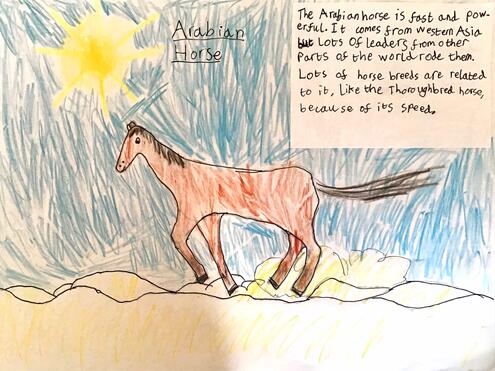 Arabian
Horse
The Arabian horse is fast and pow-
erful. It comes from western Asia
but Lots of Leaders from other
Parts of the world rode them.
Lots of horse breeds are related
to it, Like the Thoroughbred horse,
because of its speed.